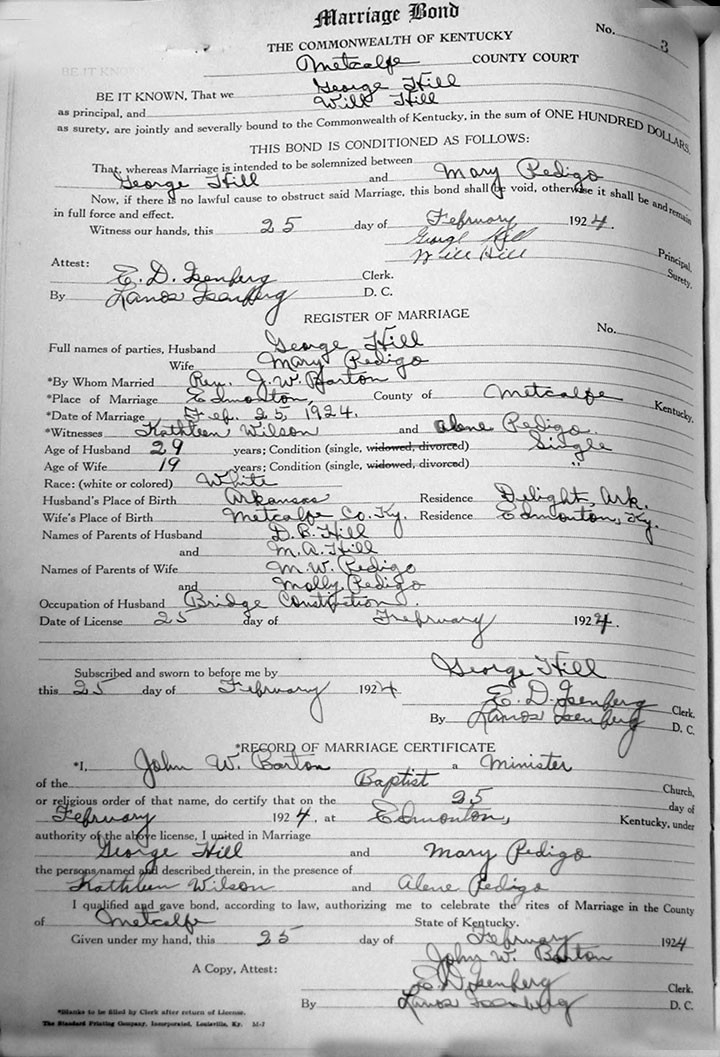 Marriage Bond
No. 3
THE COMMONWEALTH OF KENTUCKY
Metcalfe COUNTY COURT
BE IT KNOWN, That we George Hill
as principal, and Will Hill
as surety, are jointly and severally bound to the Commonwealth of Kentucky, in the sum of ONE HUNDRED DOLLARS.
THIS BOND IS CONDITIONED AS FOLLOWS:
That, whereas Marriage is intended to be solemnized between
George Hill and Mary Pedigo
Now, if there is no lawful cause to obstruct said Marriage, this bond shall be void, otherwise it shall be and remain
in full force and effect.
Witness our hands, this 25 day of February 1924.
George Hill Principal.
Will Hill Surety.
Attest:
E. D. Isenberg Clerk.
By Lanos Isenberg D. C.
REGISTER OF MARRIAGE
No.
Full names of parties, Husband George Hill
Wife Mary Pedigo
*By Whom Married Rev. J. W. Barton
*Place of Marriage Edmonton, County of Metcalfe Kentucky.
*Date of Marriage Feb. 25, 1924.
*Witnesses Kathleen Wilson and Alene Pedigo.
Age of Husband 29 years; Condition (single, widowed, divorced) Single
Age of Wife 19 years; Condition (single, widowed, divorced) "
Race: (white or colored) White
Husband's Place of Birth Arkansas Residence Delight, Ark.
Wife's Place of Birth Metcalfe Co. Ky. Residence Edmonton, Ky.
Names of Parents of Husband D. B. Hill
and M. A. Hill
Names of Parents of Wife M. W. Pedigo
and Molly Pedigo
Occupation of Husband Bridge Constrption.
Date of License 25 day of February 1924.
Subscribed and sworn to before me by George Hill
this 25 day of February 1924 E. D. Isenberg Clerk.
By Lanos Isenberg D. C.
*RECORD OF MARRIAGE CERTIFICATE
*I, John W. Barton a Minister
of the Baptist Church,
or religious order of that name, do certify that on the 25 day of
February 1924, at Edmonton, Kentucky, under
authority of the above license, I united in Marriage
George Hill and Mary Pedigo
the persons named and described therein, in the presence of
Kathleen Wilson and Alene Pedigo
I qualified and gave bond, according to law, authorizing me to celebrate the rites of Marriage in the County
of Metcalfe State of Kentucky.
Given under my hand, this 25 day of February 1924
John W. Barton
A Copy, Attest:
E. D. Isenberg Clerk.
By Lanos Isenberg D. C.
*Blanks to be filled by Clerk after return of License.
The Standard Printing Company, Incorporated, Louisville, Ky. 51-7